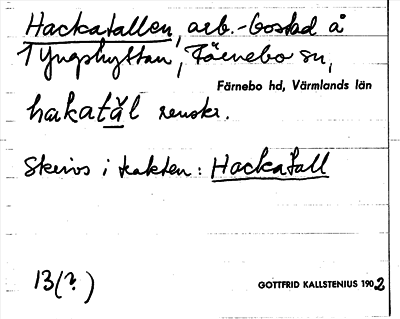 Hackatallen, arb.-bostad å
Yngshyttan, Färnebo sn,
Färnebo hd, Värmlands län
hakatäl
Skrivs i trakten: Hackatall
13(?)
GOTTFRID KALLSTENIUS 1902